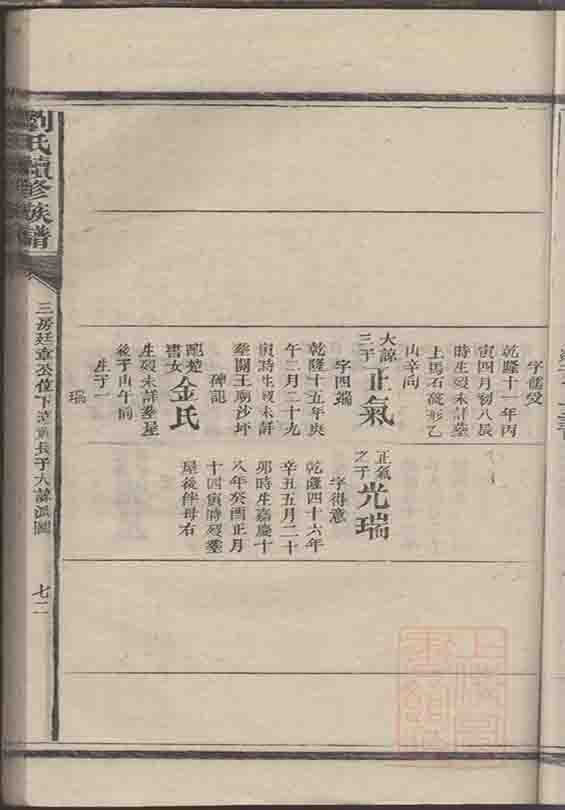 字儒受
乾隆十一年丙
寅四月初八辰
時生歿未詳塟
上馬石破形乙
山辛向
大諒
三子
正氣
字四端
乾隆十五年庚
午二月二十九
寅時生歿未詳
塟關王廟沙坪
碑龍
配楚
書女
金氏
生歿未詳塟屋
後子山午向
生子一
瑞
正氣
之子
光瑞
字得意
乾隆四十六年
辛丑五月二十
卯時生嘉慶十
八年癸酉正月
十四寅時歿塟
屋後伴母右
劉氏續修族譜
三房廷章公位下 長子大諒派圖
七二